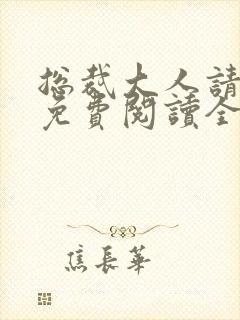 總裁大人請
免費閱讀全
焦長華